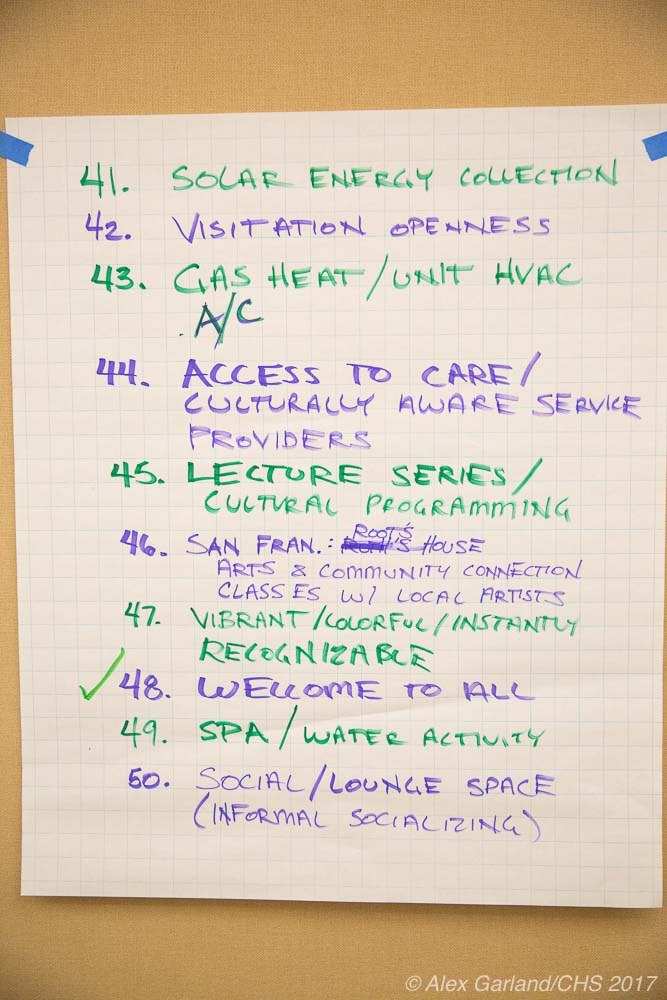 41. SOLAR ENERGY COLLECTION
42. VISITATION OPENNESS
43. GAS HEAT/UNIT HVAC
. A/C
44. ACCESS TO CARE/
CULTURALLY AWARE SERVICE
PROVIDERS
45. LECTURE SERIES/
CULTURAL PROGRAMMING
46. SAN FRAN.: ROOT'S HOUSE
ARTS & COMMUNITY CONNECTION
CLASSES W/ LOCAL ARTISTS
47. VIBRANT/COLORFUL/INSTANTLY
RECOGNIZABLE
✓ 48. WELCOME TO ALL
49. SPA/WATER ACTIVITY
50. SOCIAL/LOUNGE SPACE
(INFORMAL SOCIALIZING)
© Alex Garland/CHS 2017